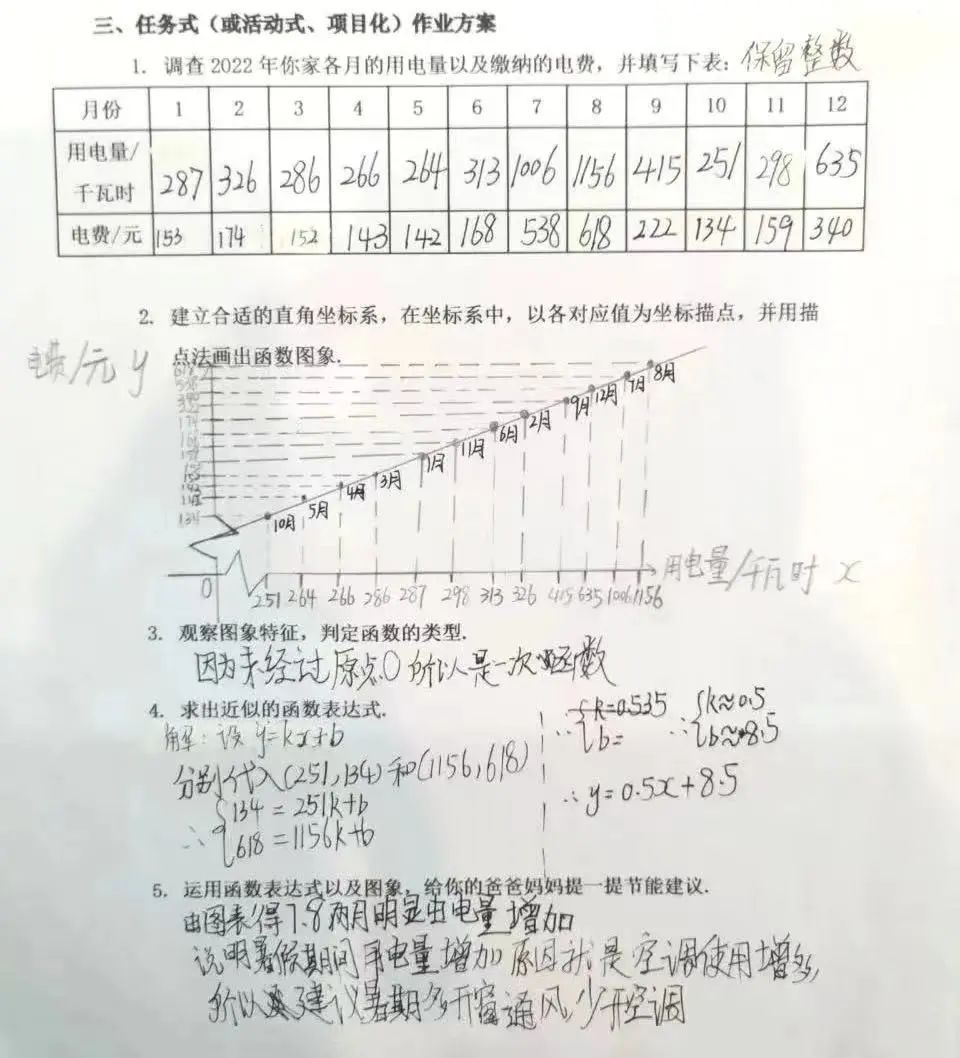 三、任务式（或活动式、项目化）作业方案
1. 调查2022年你家各月的用电量以及缴纳的电费，并填写下表：保留整数
月份 1 2 3 4 5 6 7 8 9 10 11 12
用电量/千瓦时 287 326 286 266 264 313 1006 1156 415 251 298 635
电费/元 153 174 152 143 142 168 538 618 222 134 159 340
2. 建立合适的直角坐标系，在坐标系中，以各对应值为坐标描点，并用描
点法画出函数图象.
电费/元 y
618
538
340
222
174
168
159
153
152
143
142
134
10月 5月 4月 3月 1月 11月 6月 2月 9月 12月 7月 8月
0 251 264 266 286 287 298 313 326 415 635 1006 1156
用电量/千瓦时 x
3. 观察图象特征，判定函数的类型.
因为未经过原点0所以是一次函数
4. 求出近似的函数表达式.
解：设 y=kx+b
分别代入(251,134)和(1156,618)
∴ {134=251k+b
618=1156k+b
∴ {k=0.535
b=
∴ {k≈0.5
b≈8.5
∴ y=0.5x+8.5
5. 运用函数表达式以及图象，给你的爸爸妈妈提一提节能建议.
由图表得7.8两月明显由电量增加
说明暑假期间用电量增加原因就是空调使用增多,
所以建议暑期多开窗通风,少开空调